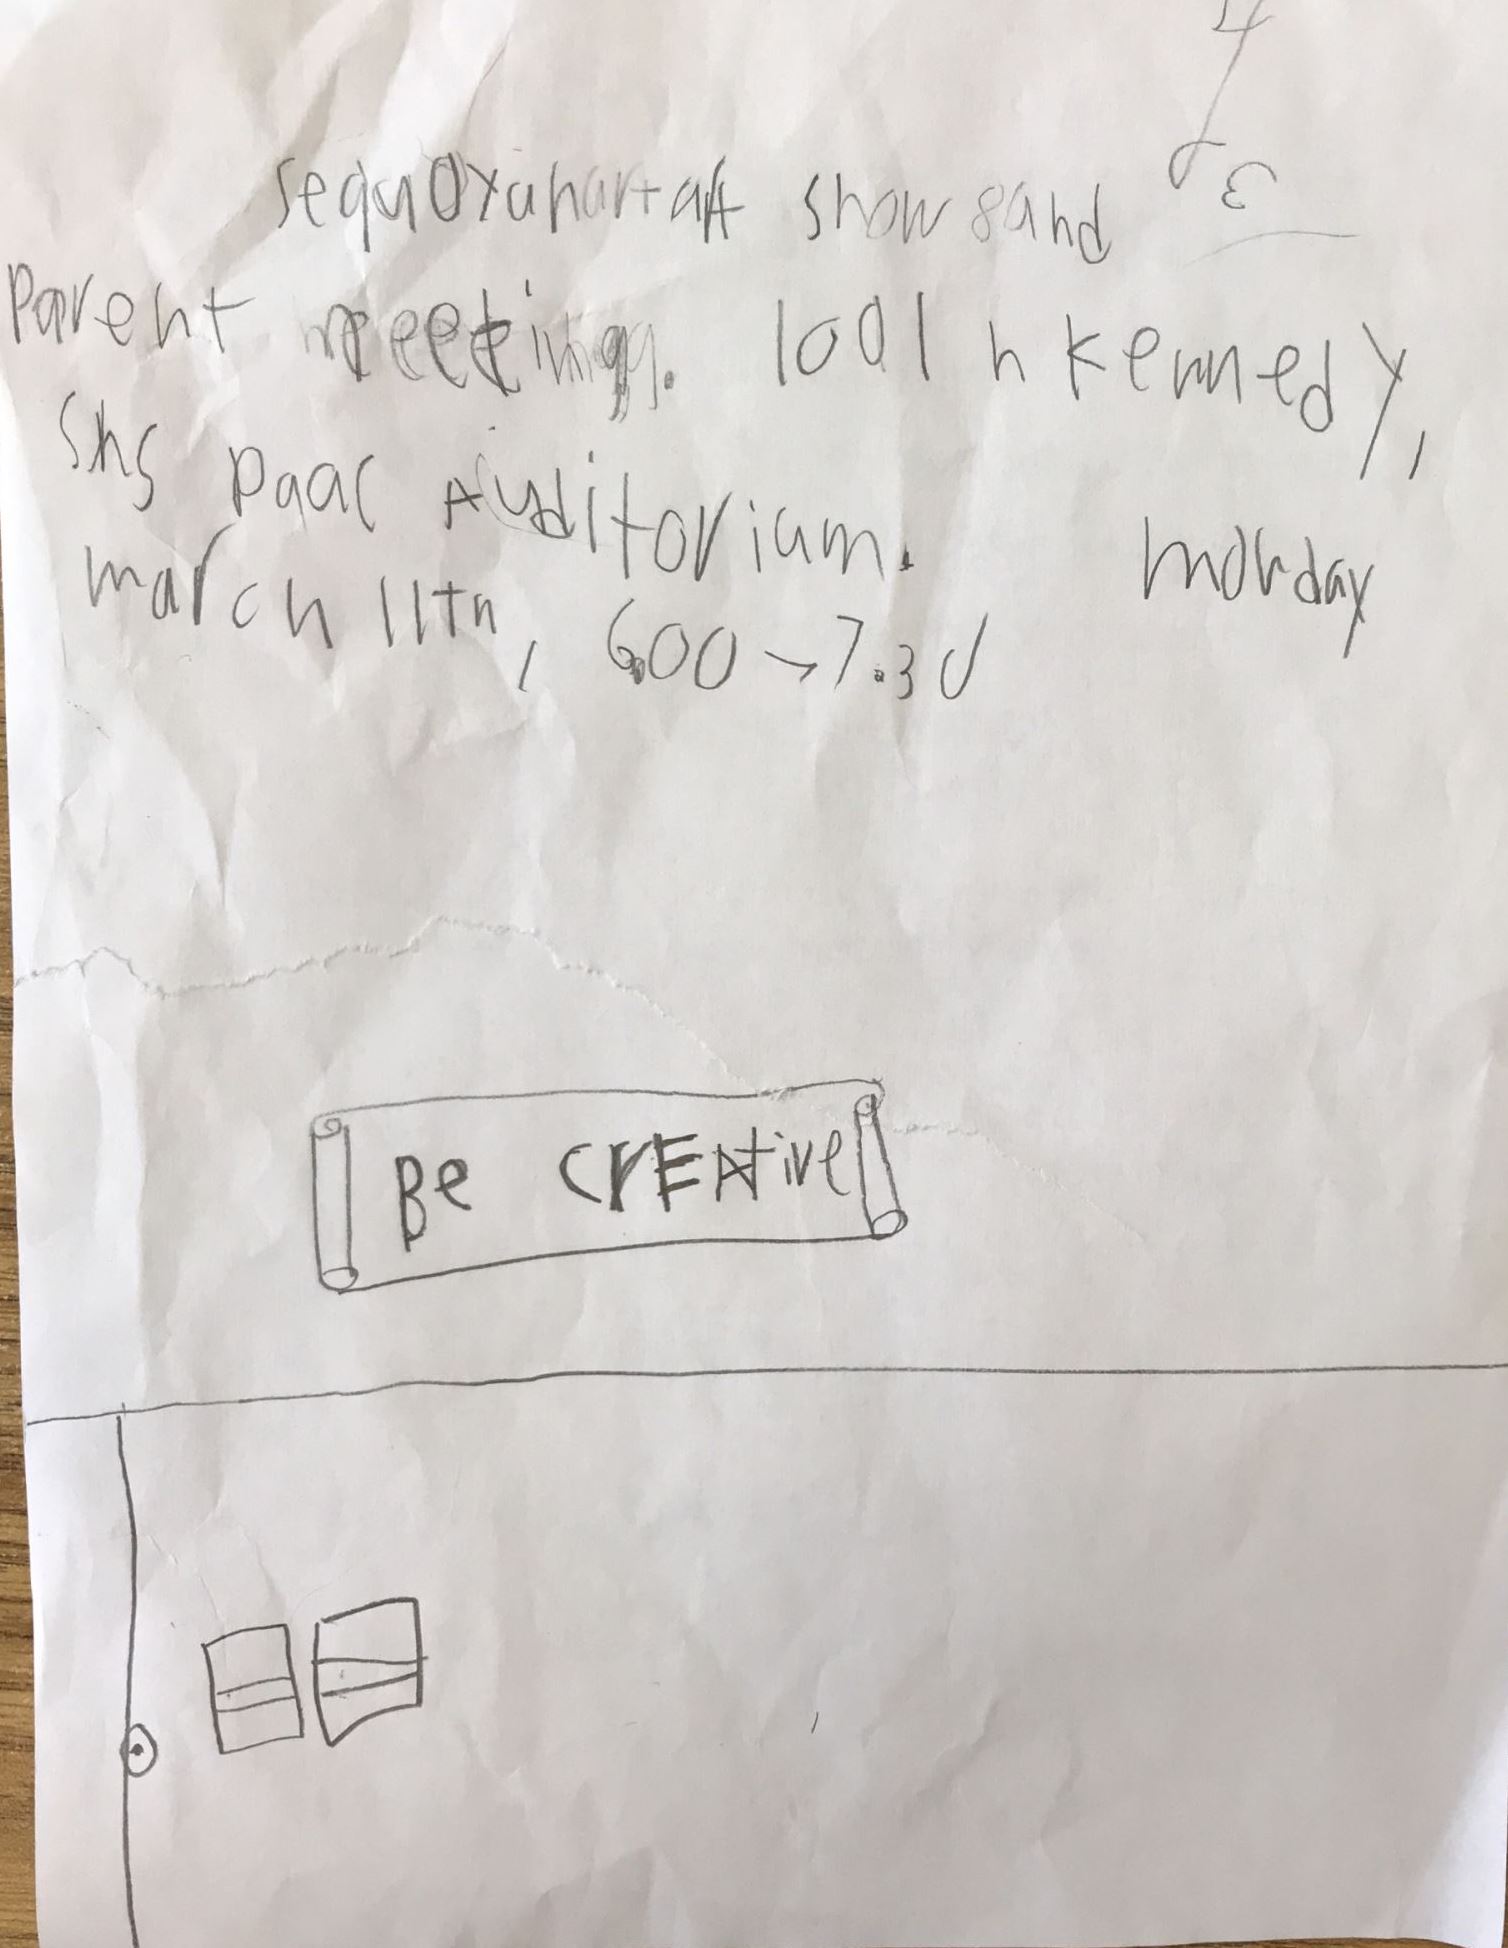 sequoyah art aft show 8 and
Parent meeting. 1001 n kennedy,
shs paac Auditorium. monday
march 11th, 6.00-7.30
Be CrEAtive